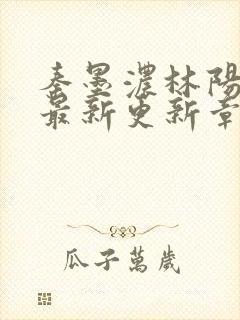 秦墨濃林陽
最新更新章
瓜子萬歲